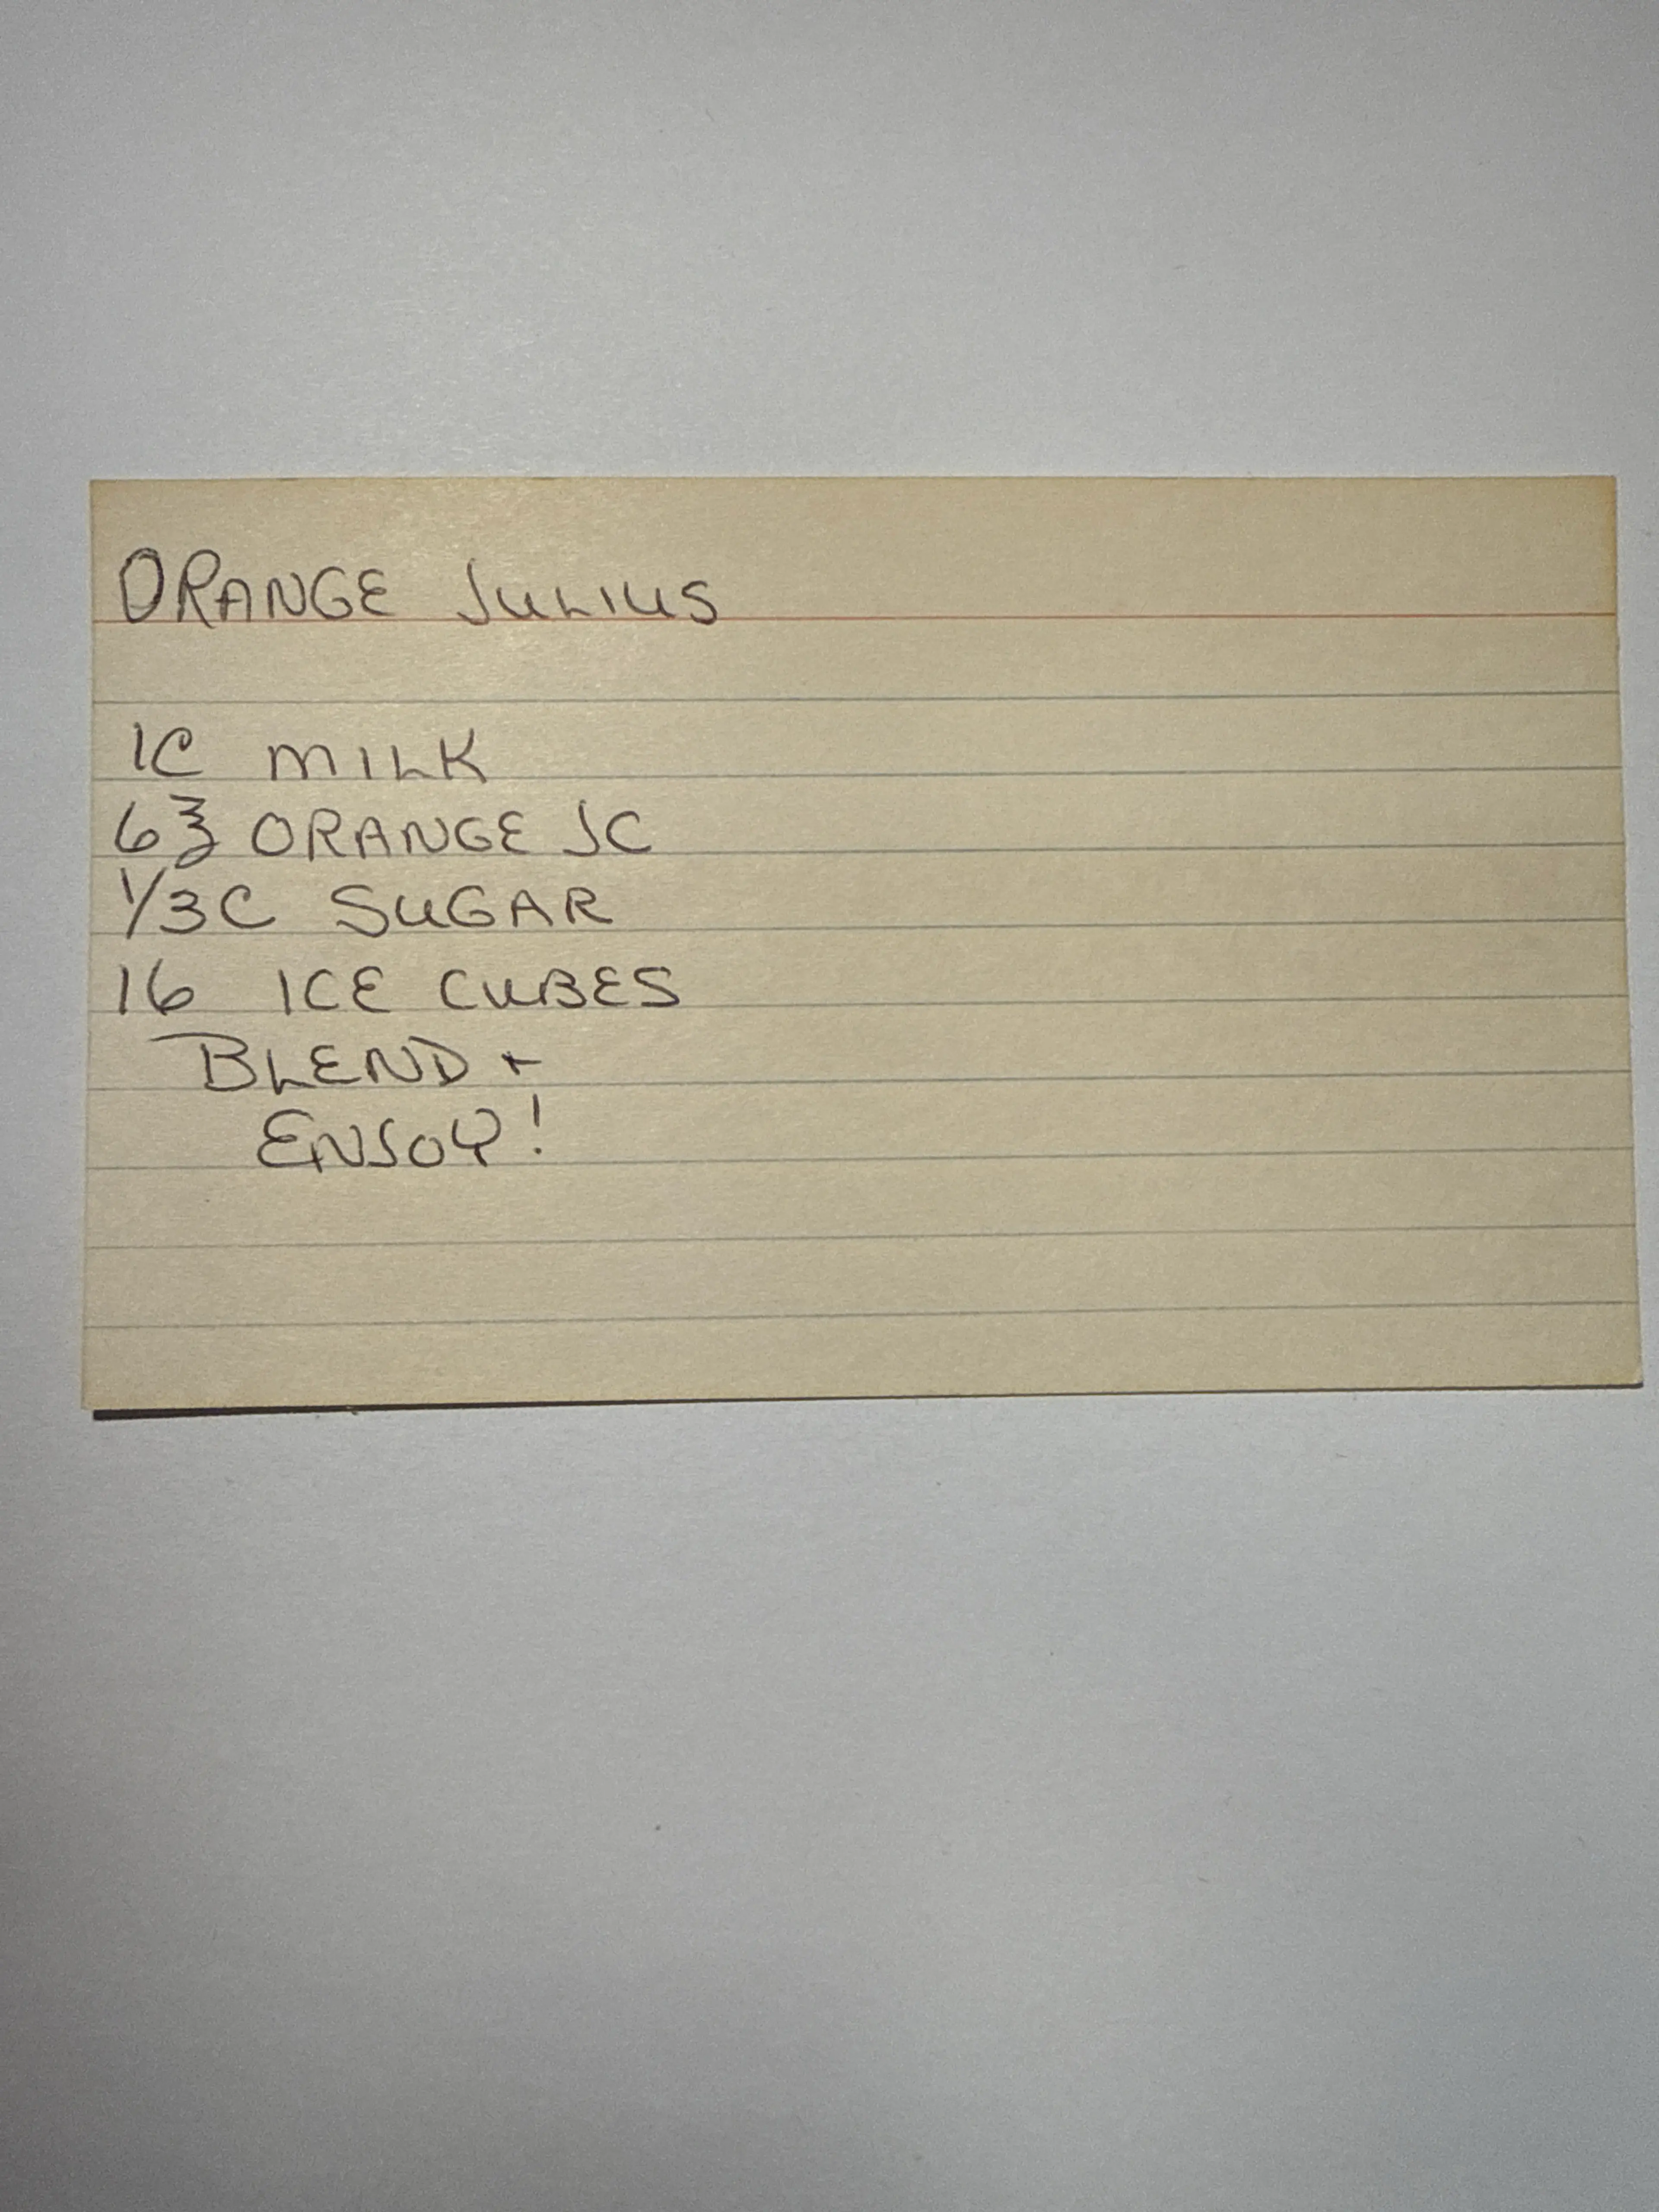 ORANGE JULIUS
1C MILK
6 ℥ ORANGE JC
1/3C SUGAR
16 ICE CUBES
BLEND +
ENJOY!